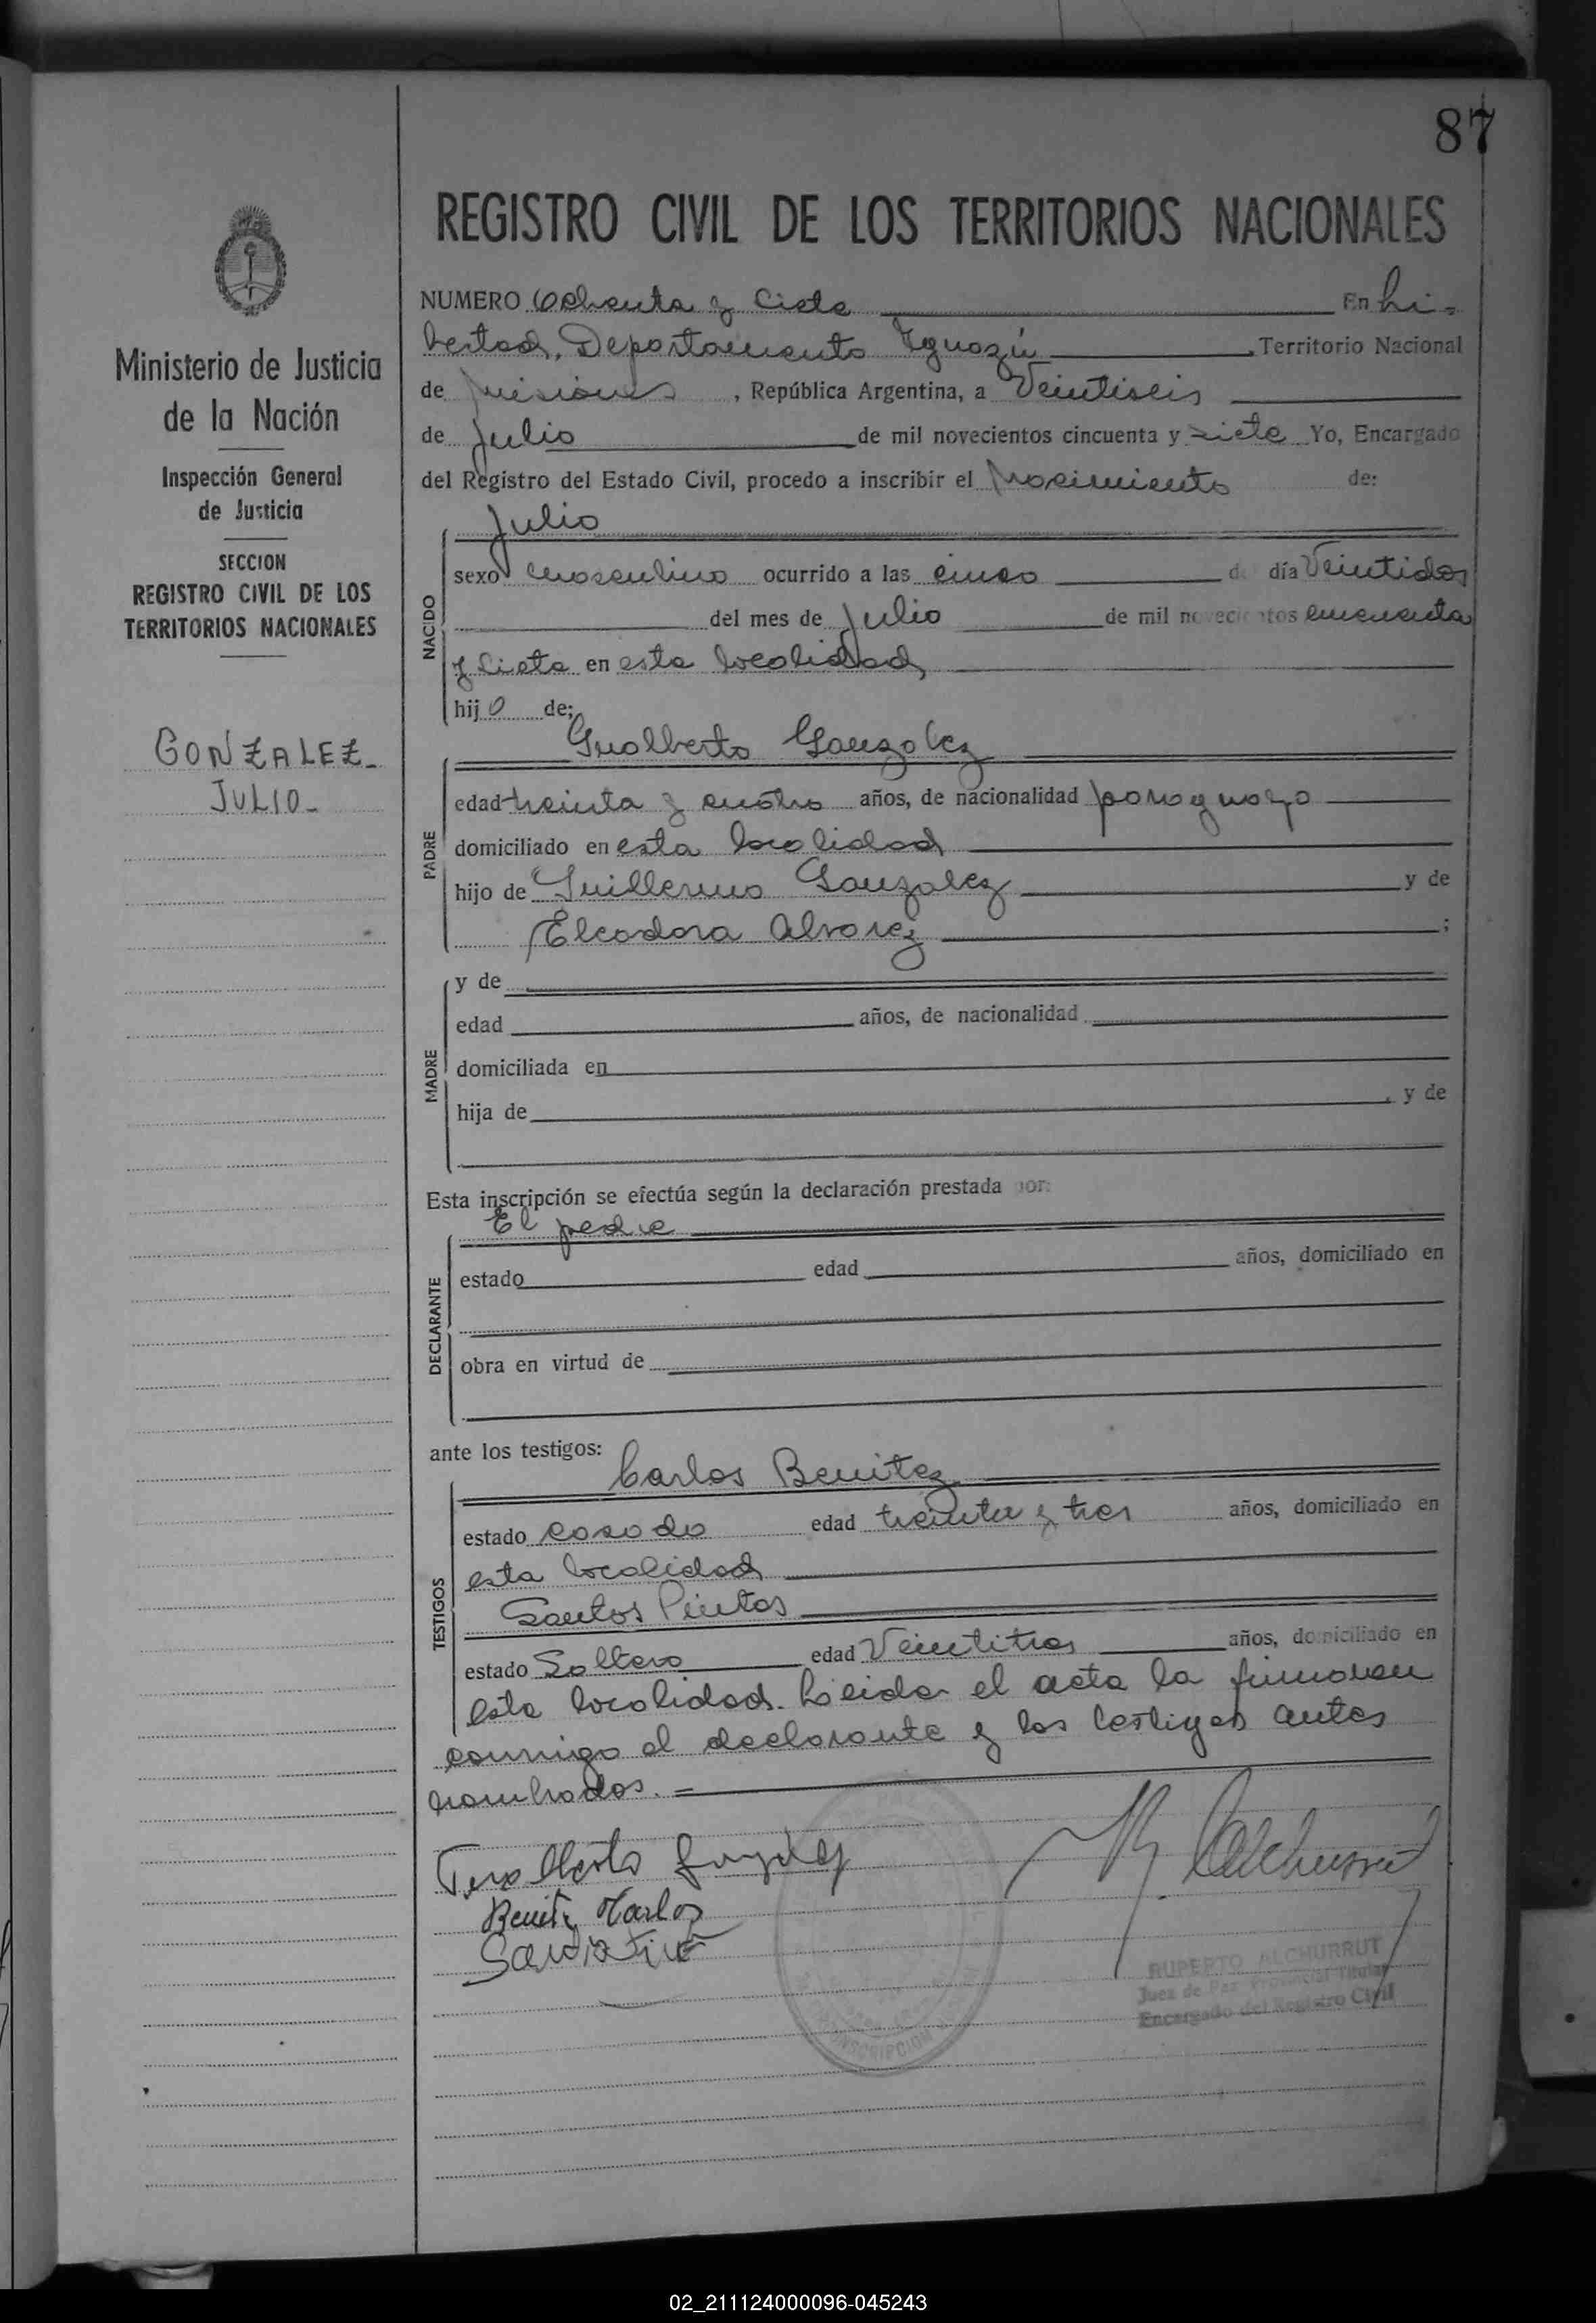 87
REGISTRO CIVIL DE LOS TERRITORIOS NACIONALES
Ministerio de Justicia
de la Nación
Inspección General
de Justicia
SECCION
REGISTRO CIVIL DE LOS
TERRITORIOS NACIONALES
GONZALEZ_
JULIO_
NUMERO Ochenta y Ciete En Li-
bertad, Departamento Yguazú Territorio Nacional
de misiones, República Argentina, a Veintiseis
de Julio de mil novecientos cincuenta y siete Yo, Encargado
del Registro del Estado Civil, procedo a inscribir el Nacimiento de:
Julio
NACIDO
sexo masculino ocurrido a las cinco de día Veintidos
del mes de Julio de mil novecientos cincuenta
y Siete en esta localidad
hijo de;
Gualberto Gonzalez
PADRE
edad treinta y cuatro años, de nacionalidad paraguayo
domiciliado en esta localidad
hijo de Guillermo Gonzalez y de
Eleodora Alvarez ;
MADRE
y de
edad años, de nacionalidad
domiciliada en
hija de , y de
Esta inscripción se efectúa según la declaración prestada por:
El padre
DECLARANTE
estado edad años, domiciliado en
obra en virtud de
ante los testigos:
Carlos Benitez
TESTIGOS
estado casado edad treinta y tres años, domiciliado en
esta localidad
Santos Pintos
estado Soltero edad Veintitres años, domiciliado en
esta localidad. Leida el acta la firmaron
conmigo el declarante y los testigos antes
nombrados. =
Gualberto Gonzalez
Benitez Carlos
R. Alchurrut
RUPERTO ALCHURRUT
Juez de Paz Provincial Titular
Encargado del Registro Civil
02_211124000096-045243